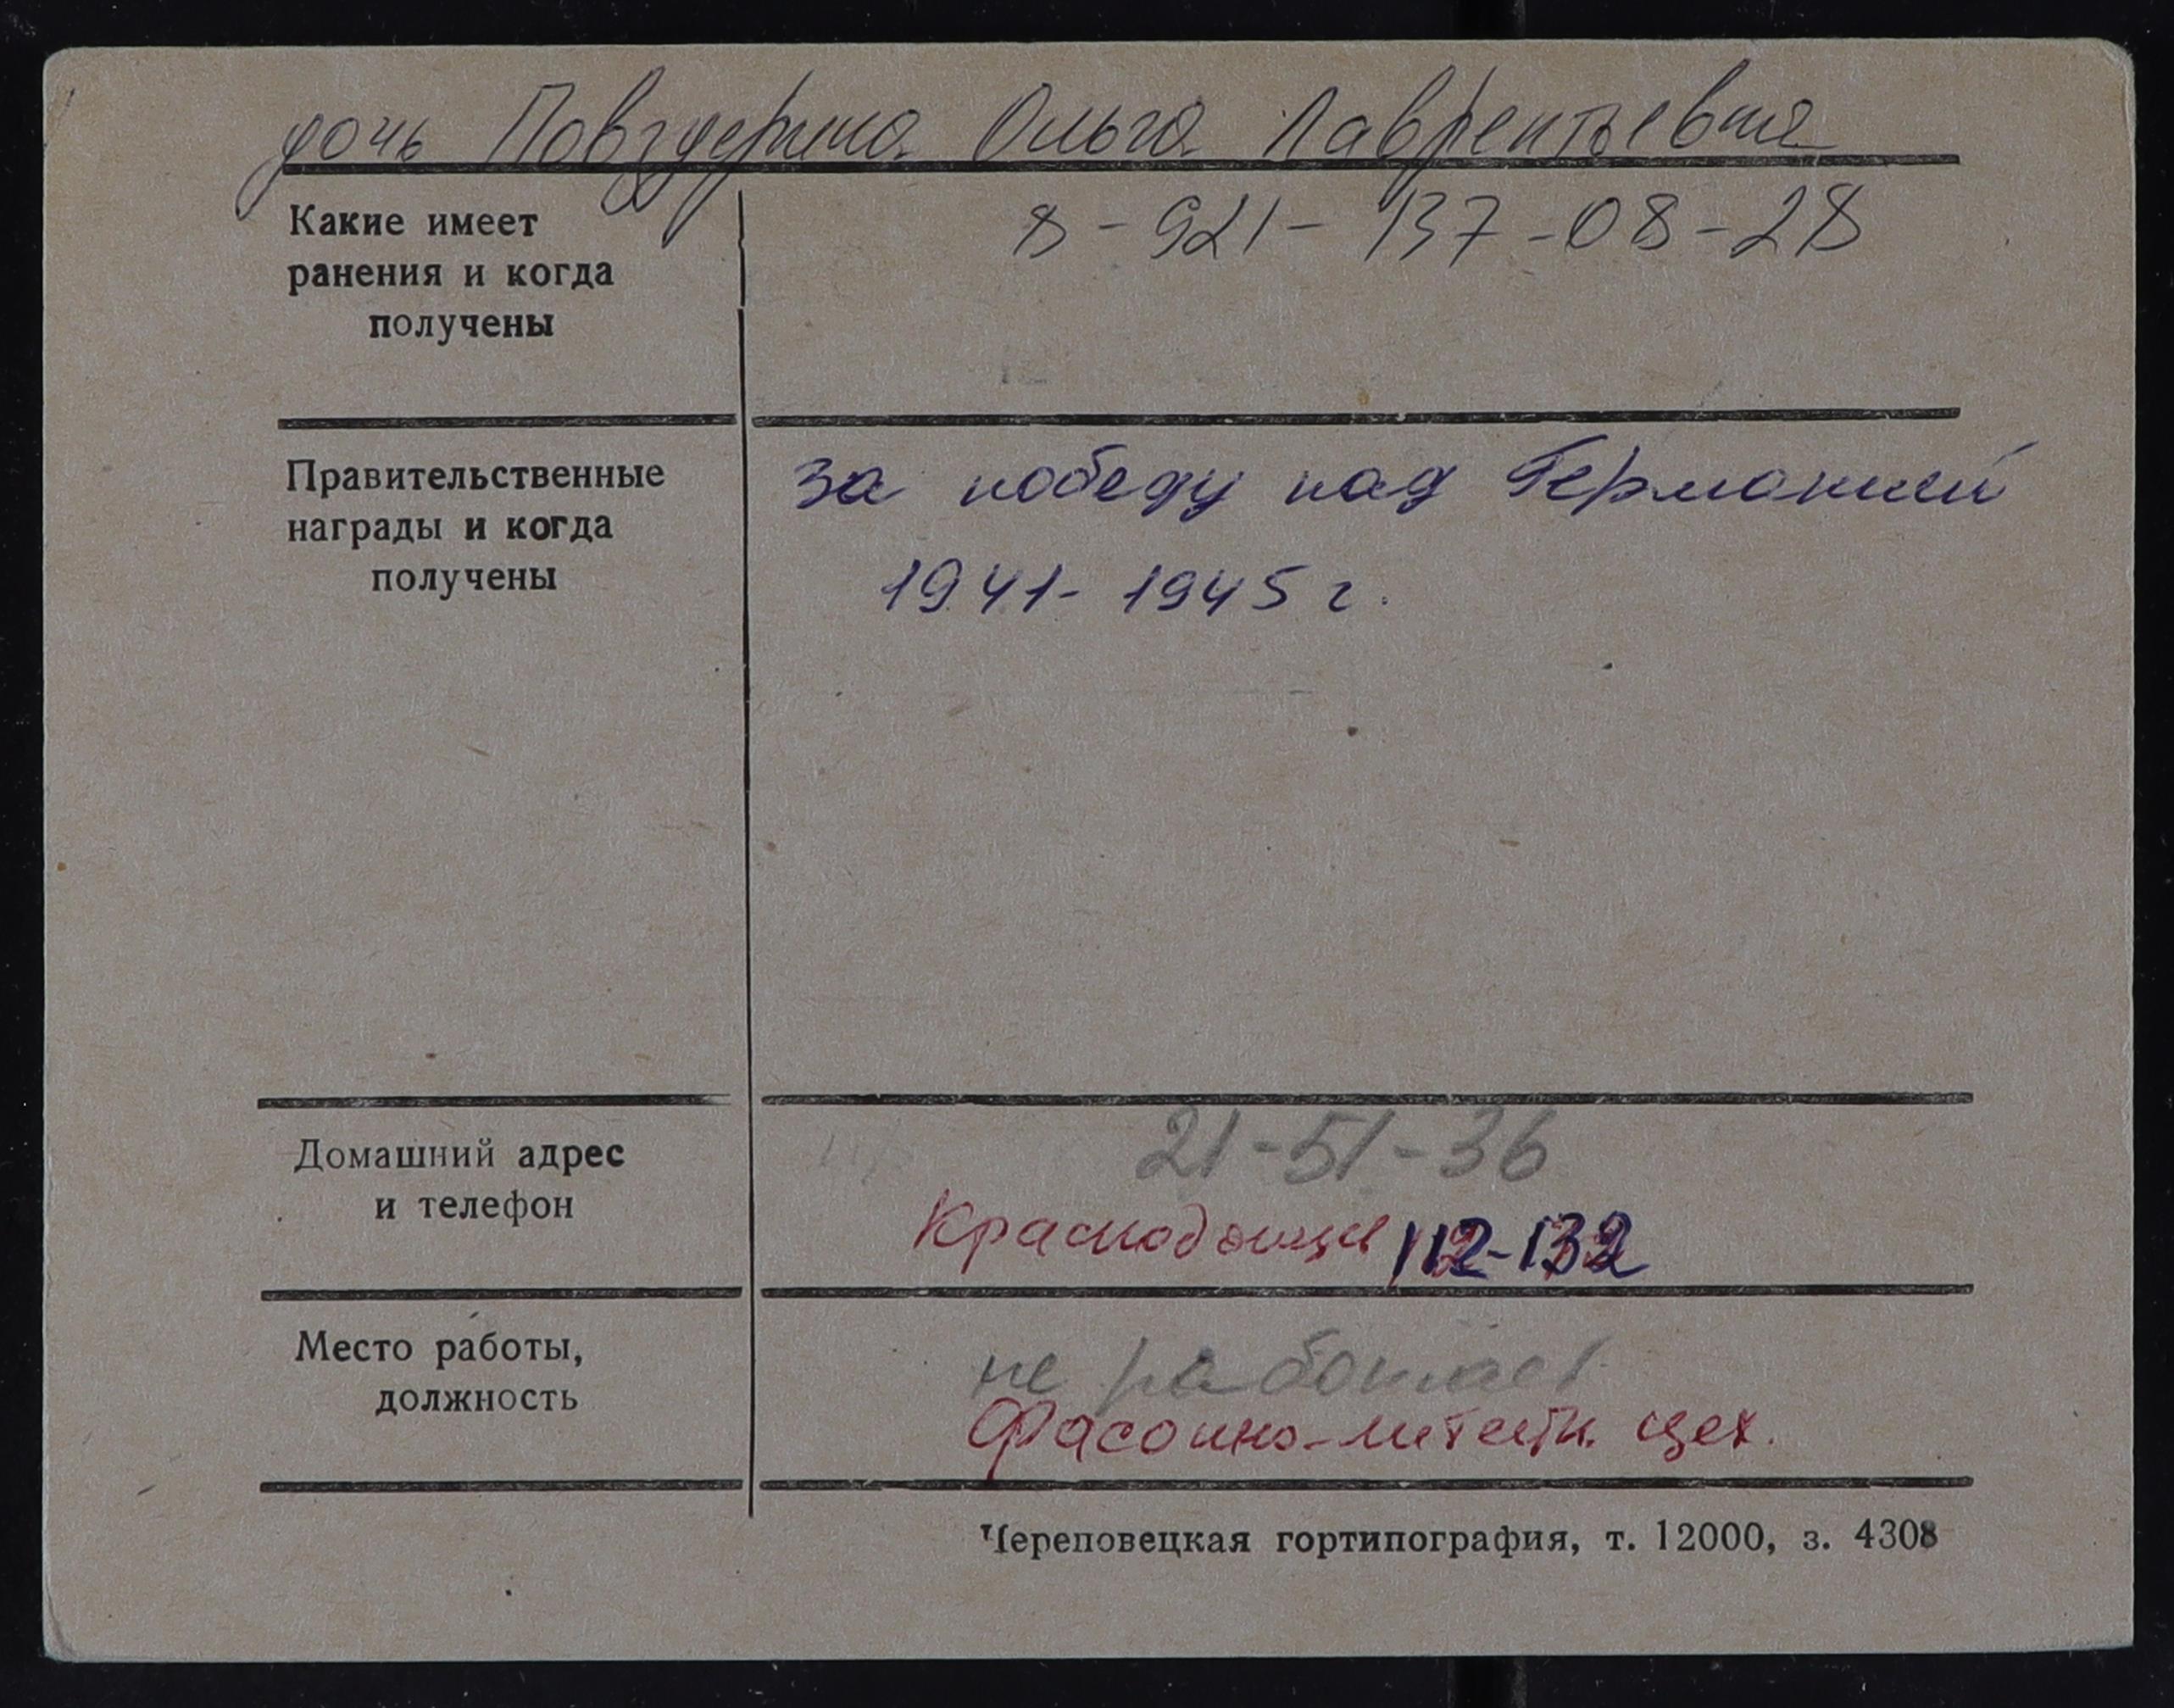 дочь Повздерина Ольга Лаврентьевна
Какие имеет
ранения и когда
получены
8-921-137-08-28
Правительственные
награды и когда
получены
за победу над Германией
1941-1945 г.
Домашний адрес
и телефон
21-51-36
Краснодонцев 112-132
Место работы,
должность
не работает
Фасонно-литейн. цех.
Череповецкая гортипография, т. 12000, з. 4308